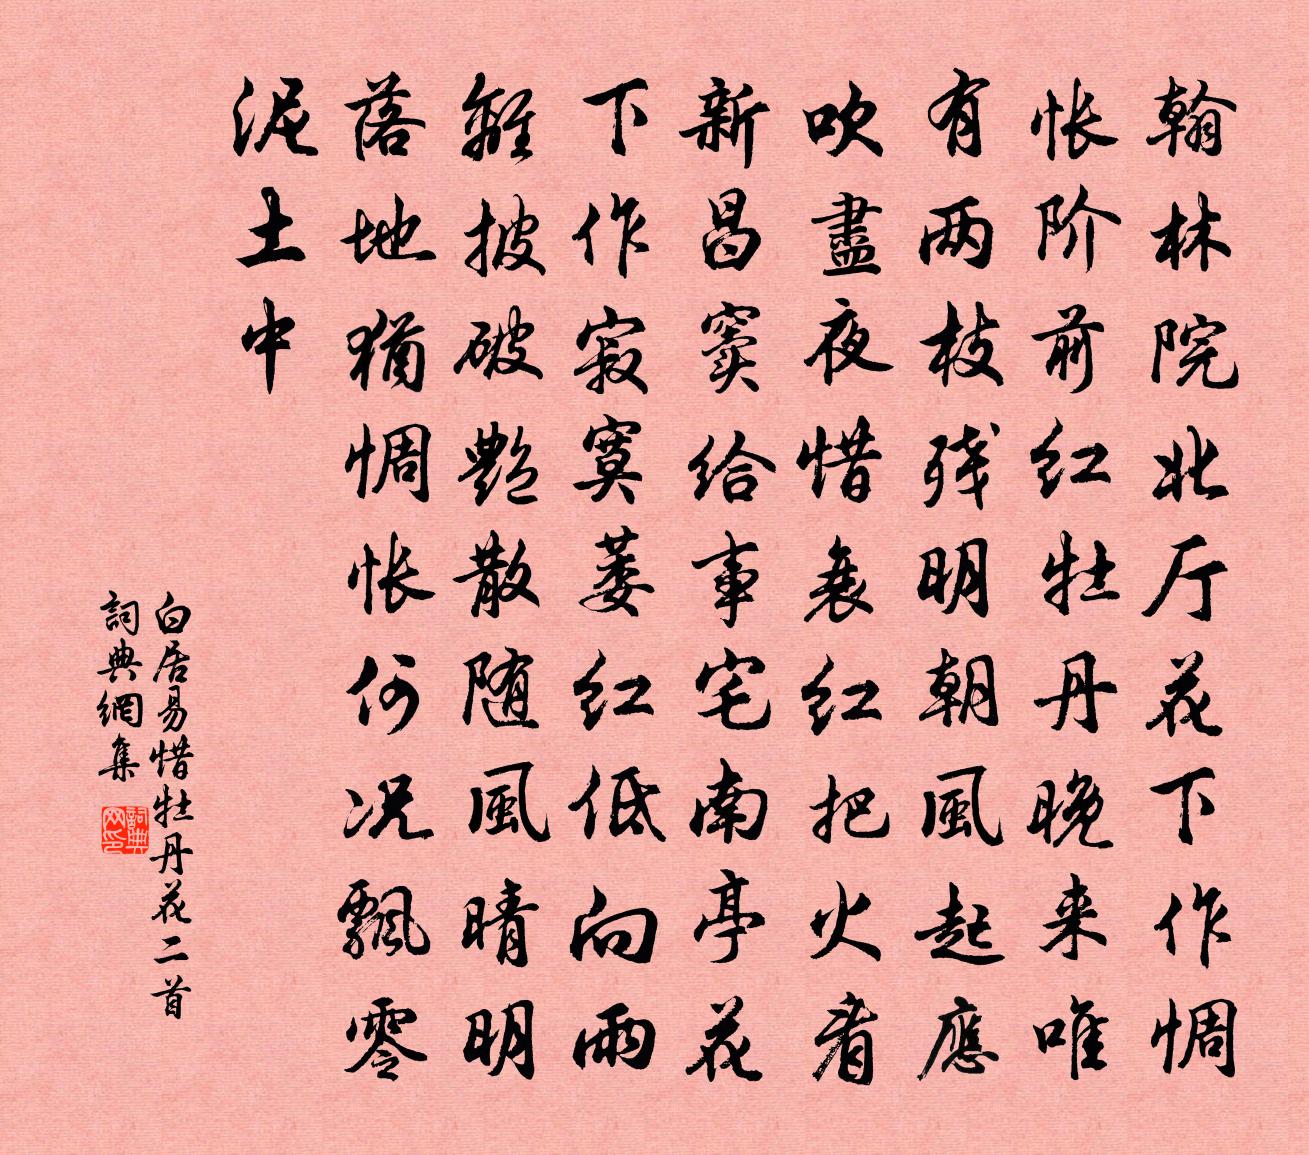 翰林院北厅花下作惆
怅阶前红牡丹晚来唯
有两枝残明朝風起應
吹盡夜惜衰红把火看
新昌窦给事宅南亭花
下作寂寞萎红低向雨
離披破艷散随風晴明
落地猶惆怅何况飄零
泥土中
白居易惜牡丹花二首
詞典網集
詞典网印